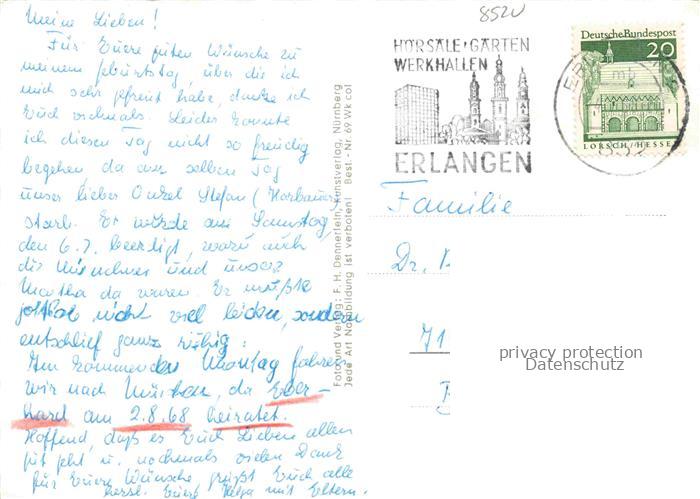 Meine Lieben!
Für Euere guten Wünsche zu
meinem Geburtstag, über die ich
mich sehr gefreut habe, danke ich
Euch nochmals. Leider konnte
ich diesen Tag nicht so freudig
begehen da am selben Tag
unser lieber Onkel Stefan (
starb. Er wurde am Samstag,
den 6.7. beerdigt, wozu auch
die Münchner und unsere
Martha da waren. Er mußte
nicht viel leiden, sondern
entschlief ganz ruhig.
Am kommenden Montag fahren
wir nach München, da Eber-
hard am 2.8.68 heiratet.
Hoffend, daß es Euch Lieben allen
gut geht u. nochmals vielen Dank
für Euere Wünsche, grüßt Euch alle
herzl. Euere Helga mit Eltern.
Foto und Verlag: F. H. Dennerlein, Kunstverlag, Nürnberg
Jede Art Nachbildung ist verboten! Best.-Nr. 69 Wk col
8520
HÖRSÄLE·GÄRTEN
WERKHALLEN
ERLANGEN
Deutsche Bundespost
20
LORSCH/HESSEN
mb
Familie
Dr.
71
privacy protection
Datenschutz